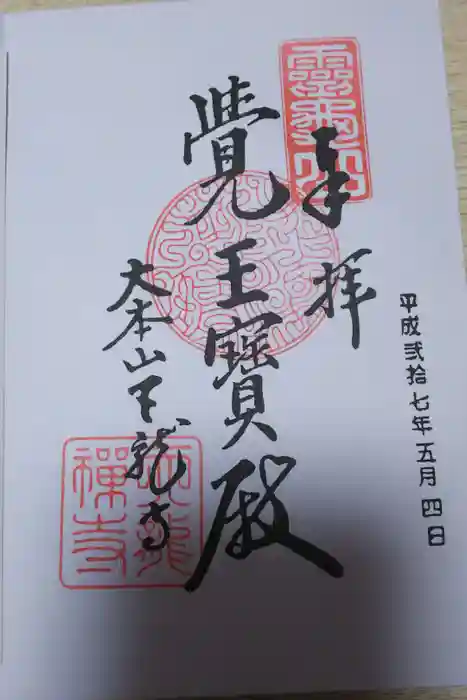 平成弐拾七年五月四日
奉拝
覺王寶殿
大本山天龍寺
天龍禅寺